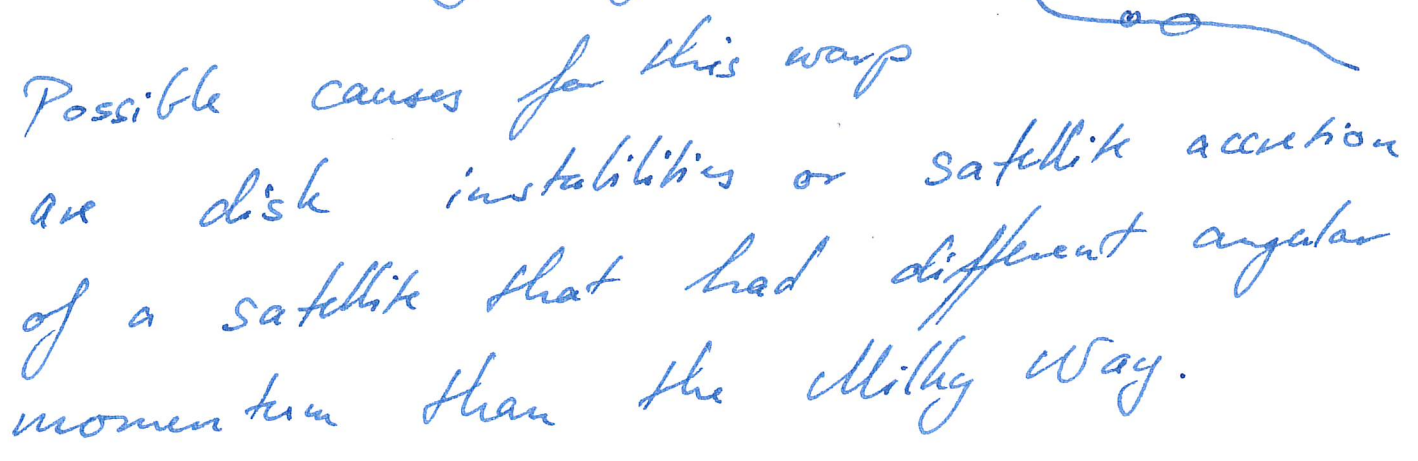 Possible causes for this warp
are disk instabilities or satellite accretion
of a satellite that had different angular
momentum than the Milky Way.